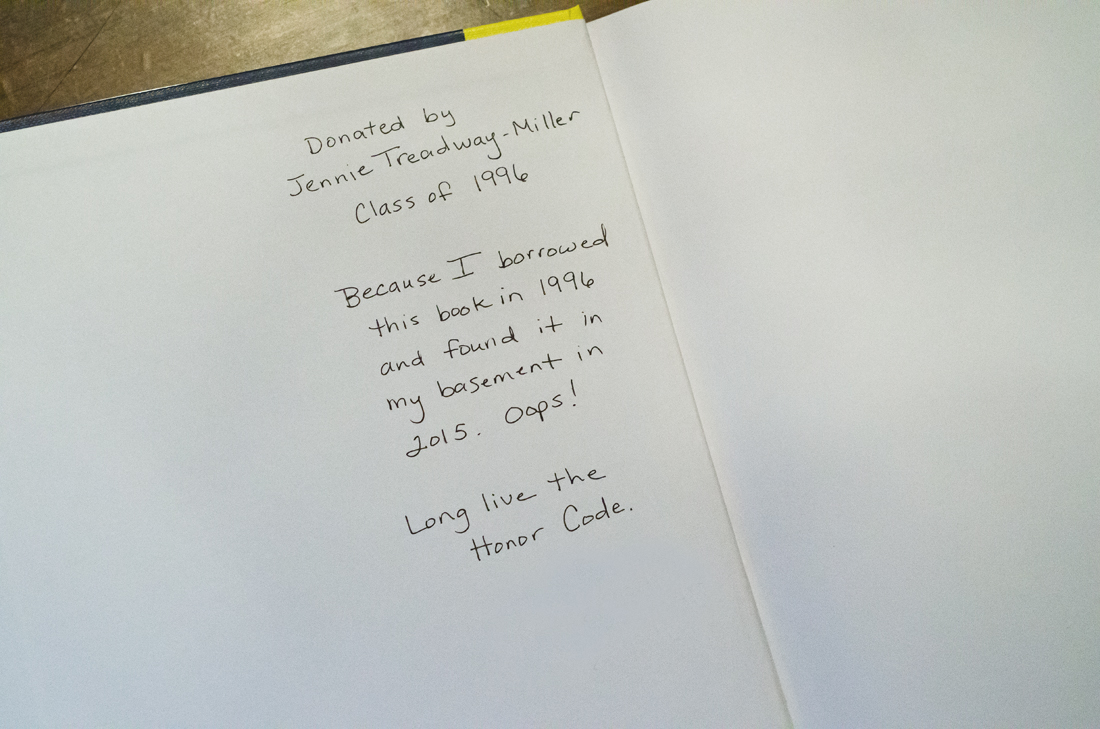 Donated by
Jennie Treadway-Miller
Class of 1996
Because I borrowed
this book in 1996
and found it in
my basement in
2015. Oops!
Long live the
Honor Code.